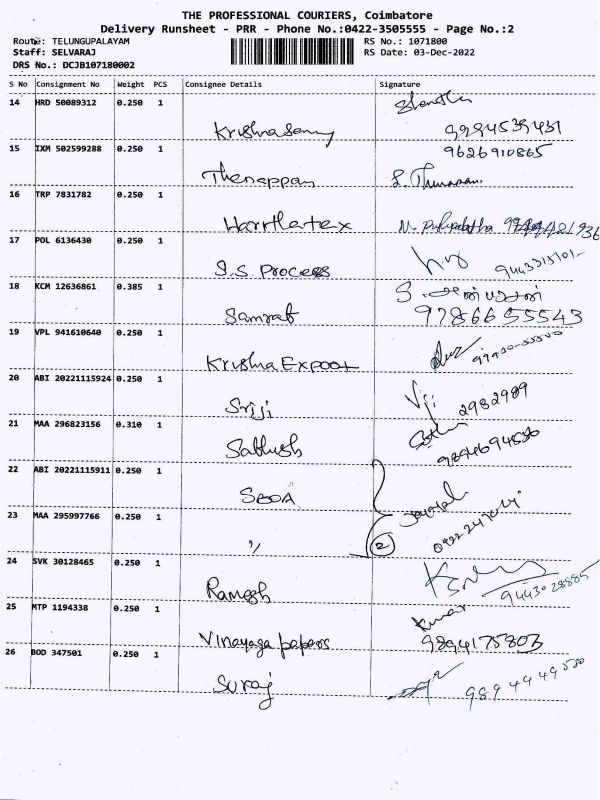 THE PROFESSIONAL COURIERS, Coimbatore
Delivery Runsheet - PRR - Phone No.:0422-3505555 - Page No.:2
Route: TELUNGUPALAYAM
Staff: SELVARAJ
DRS No.: DCJB107180002
RS No.: 1071800
RS Date: 03-Dec-2022
S No Consignment No Weight PCS Consignee Details Signature
14 HRD 50089312 0.250 1
Krishnasamy
15 IXM 502599288 0.250 1 9626910865
Thenappan
16 TRP 7831782 0.250 1
17 POL 6136430 0.250 1
S.S. Process
18 KCM 12636861 0.385 1
9786655543
19 VPL 941610640 0.250 1
Krishna Export
20 ABI 20221115924 0.250 1
Sriji Viji 2982989
21 MAA 296823156 0.310 1
Sathish
22 ABI 20221115911 0.250 1
SBOA
23 MAA 295997766 0.250 1
〃 2
24 SVK 30128465 0.250 1
Ramesh 9443028885
25 MTP 1194338 0.250 1 Kumar
Vinayaga papers 9894175803
26 BOD 347501 0.250 1
Suraj